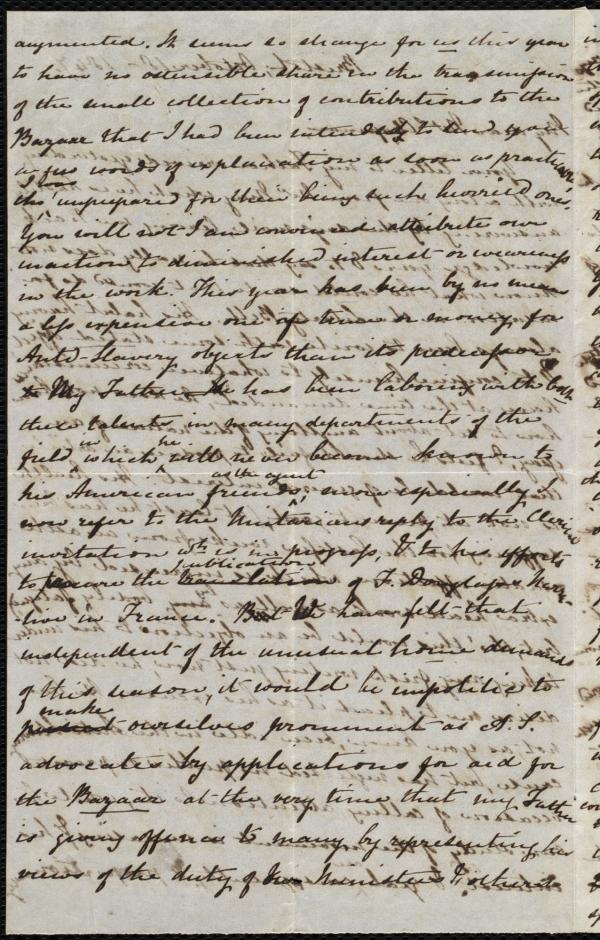 augmented. It seems so strange for us this year
to have no ostensible share in the transmission
of the small collection of contributions to the
Bazaar that I had been intending to send you
a few words of explanation as soon as practicable,
I was
tho' unprepared for their being such hurried ones.
You will not I am convinced attribute our
inaction to diminished interest or weariness
in the work. This year has been by no means
a less expensive one of time or money for
Anti Slavery objects than its predecessors
& My Father He has been laboring with both
these talents in many departments of the
in he
field which will never become known to
as the agent
his American friends, more especially I
now refer to the Unitarians reply to the Clerical
invitation wh. is in progress, & to his efforts
publication
to procure the translation of F. Douglass Narra-
tive in France. But We have felt that
independent of the unusual home demands
of this season, it would be impolitic to
make
present ourselves prominent as A.S.
advocates by applications for aid for
the Bazaar at the very time that my Father
is giving offence to many by representing his
views of the duty of Ministers & others